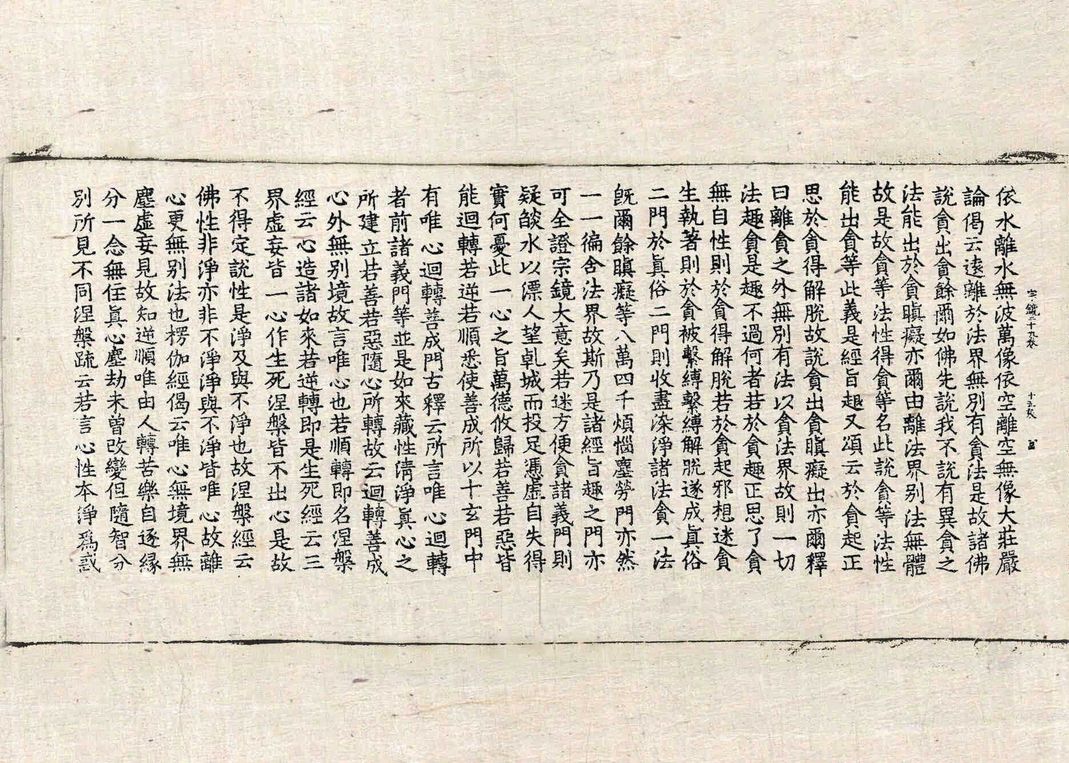 宗鏡十九卷
依水離水無波萬像依空離空無像大莊嚴
論偈云遠離於法界無別有貪法是故諸佛
說貪出貪餘爾如佛先說我不說有異貪之
法能出於貪瞋癡亦爾由離法界別法無體
故是故貪等法性得貪等名此說貪等法性
能出貪等此義是經旨趣又頌云於貪起正
思於貪得解脫故說貪出貪瞋癡出亦爾釋
曰離貪之外無別有法以貪法界故則一切
法趣貪是趣不過何者若於貪趣正思了貪
無自性則於貪得解脫若於貪起邪想迷貪
生執著則於貪被繫縛繫縛解脫遂成眞俗
二門於眞俗二門則收盡染淨諸法貪一法
旣爾餘瞋癡等八萬四千煩惱塵勞門亦然
一一徧含法界故斯乃是諸經旨趣之門亦
可全證宗鏡大意矣若迷方便貪諸義門則
疑燄水以漂人望乹城而投足憑虛自失得
實何憂此一心之旨萬德攸歸若善若惡皆
能迴轉若逆若順悉使善成所以十玄門中
有唯心迴轉善成門古釋云所言唯心迴轉
者前諸義門等並是如來藏性淸淨眞心之
所建立若善若惡隨心所轉故云迴轉善成
心外無別境故言唯心也若順轉即名涅槃
經云心造諸如來若逆轉即是生死經云三
界虛妄皆一心作生死涅槃皆不出心是故
不得定說性是淨及與不淨也故涅槃經云
佛性非淨亦非不淨淨與不淨皆唯心故離
心更無別法也楞伽經偈云唯心無境界無
塵虛妄見故知逆順唯由人轉苦樂自逐緣
分一念無住眞心塵劫未曾改變但隨智分
別所見不同涅槃疏云若言心性本淨爲惑